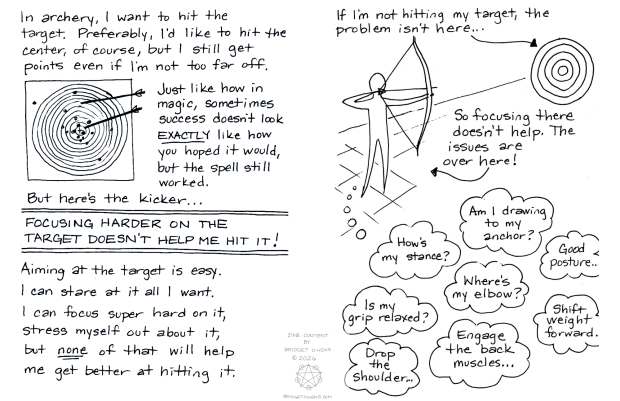 In archery, I want to hit the
target. Preferably, I'd like to hit the
center, of course, but I still get
points even if I'm not too far off.
Just like how in
magic, sometimes
success doesn't look
EXACTLY like how
you hoped it would,
but the spell still
worked.
But here's the kicker...
FOCUSING HARDER ON THE
TARGET DOESN'T HELP ME HIT IT!
Aiming at the target is easy.
I can stare at it all I want.
I can focus super hard on it,
stress myself out about it,
but none of that will help
me get better at hitting it.
ZINE CONTENT
BY
BRIDGET OWENS
© 2026
BRIDGETOWENS.COM
If I'm not hitting my target, the
problem isn't here...
So focusing there
doesn't help. The
issues are
over here!
Am I drawing
to my
anchor?
How's
my stance?
Good
posture...
Where's
my elbow?
Is my
grip relaxed?
Shift
weight
forward.
Engage
the back
muscles...
Drop
the
shoulder...